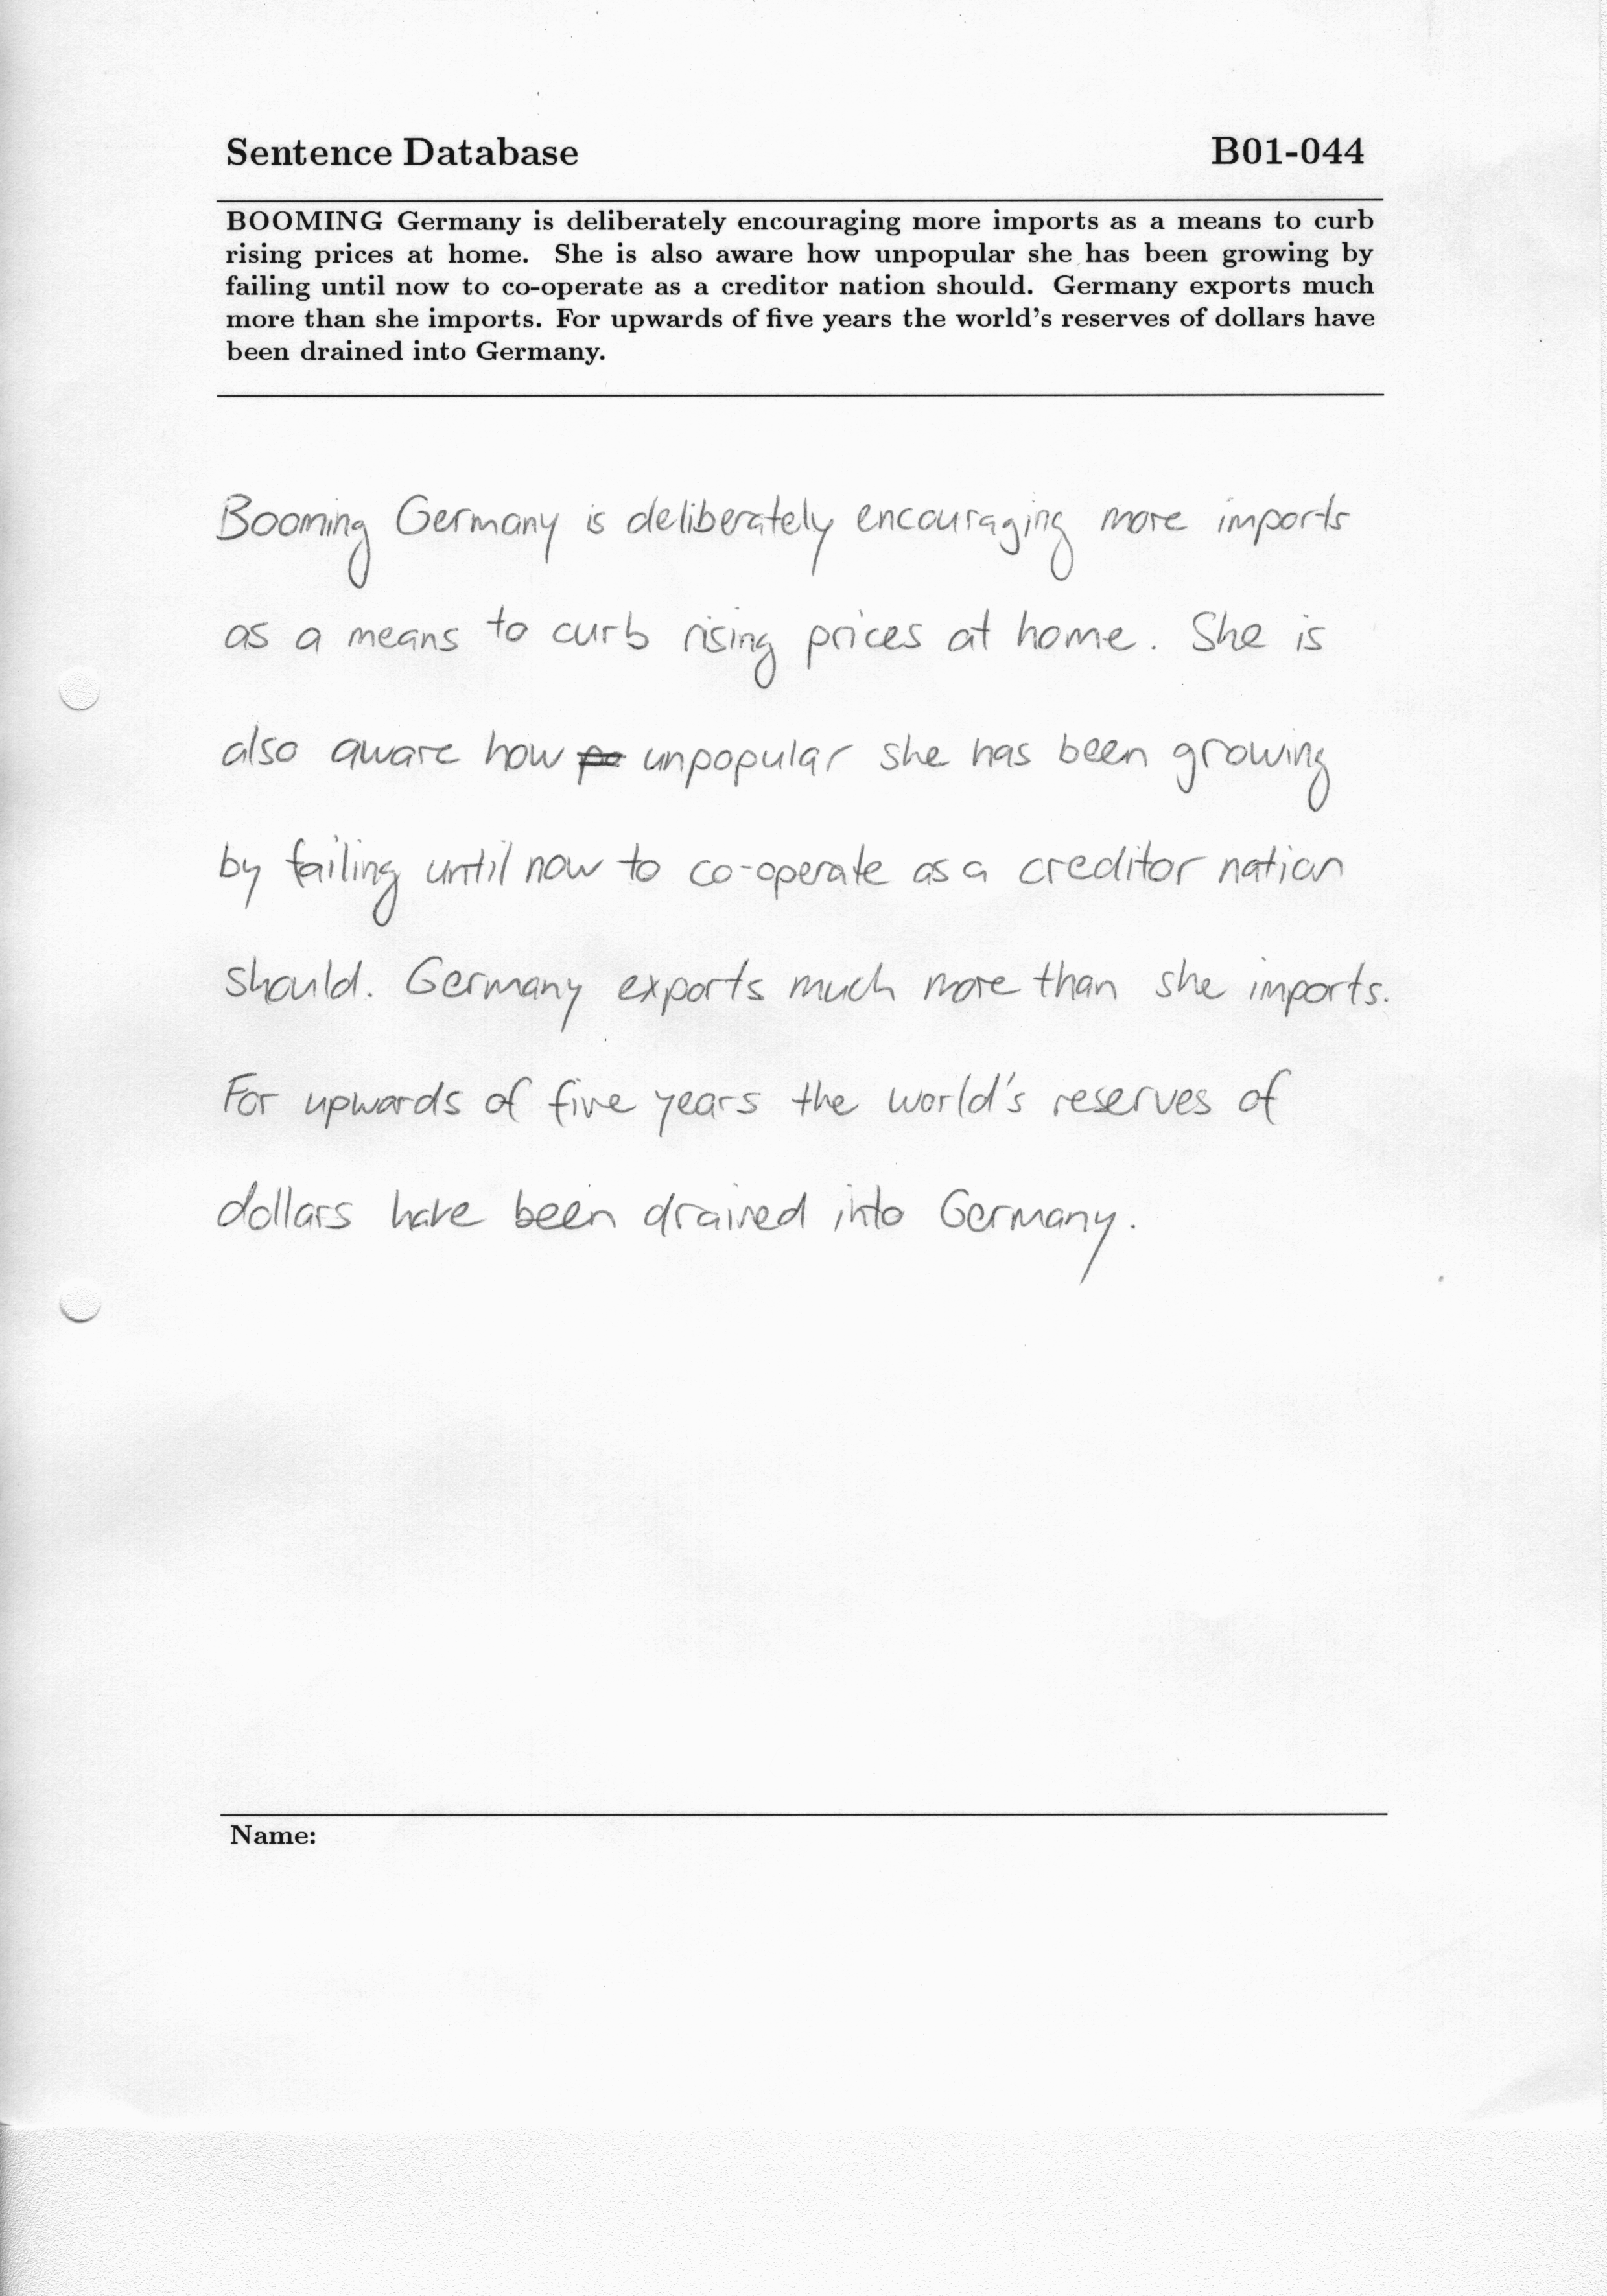 Sentence Database B01-044
BOOMING Germany is deliberately encouraging more imports as a means to curb
rising prices at home. She is also aware how unpopular she has been growing by
failing until now to co-operate as a creditor nation should. Germany exports much
more than she imports. For upwards of five years the world's reserves of dollars have
been drained into Germany.
Booming Germany is deliberately encouraging more imports
as a means to curb rising prices at home. She is
also aware how po unpopular she has been growing
by failing until now to co-operate as a creditor nation
should. Germany exports much more than she imports.
For upwards of five years the world's reserves of
dollars have been drained into Germany.
Name: